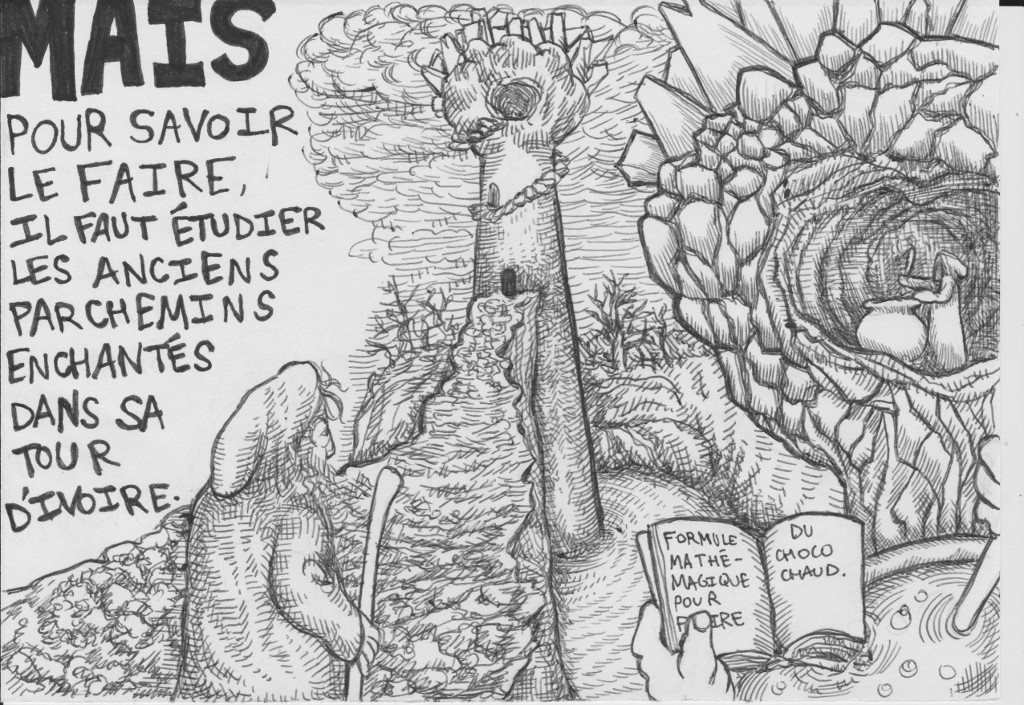 MAIS
POUR SAVOIR
LE FAIRE,
IL FAUT ÉTUDIER
LES ANCIENS
PARCHEMINS
ENCHANTÉS
DANS SA
TOUR
D'IVOIRE.
FORMULE
MATHÉ-
MAGIQUE
POUR
DU
CHOCO
CHAUD.